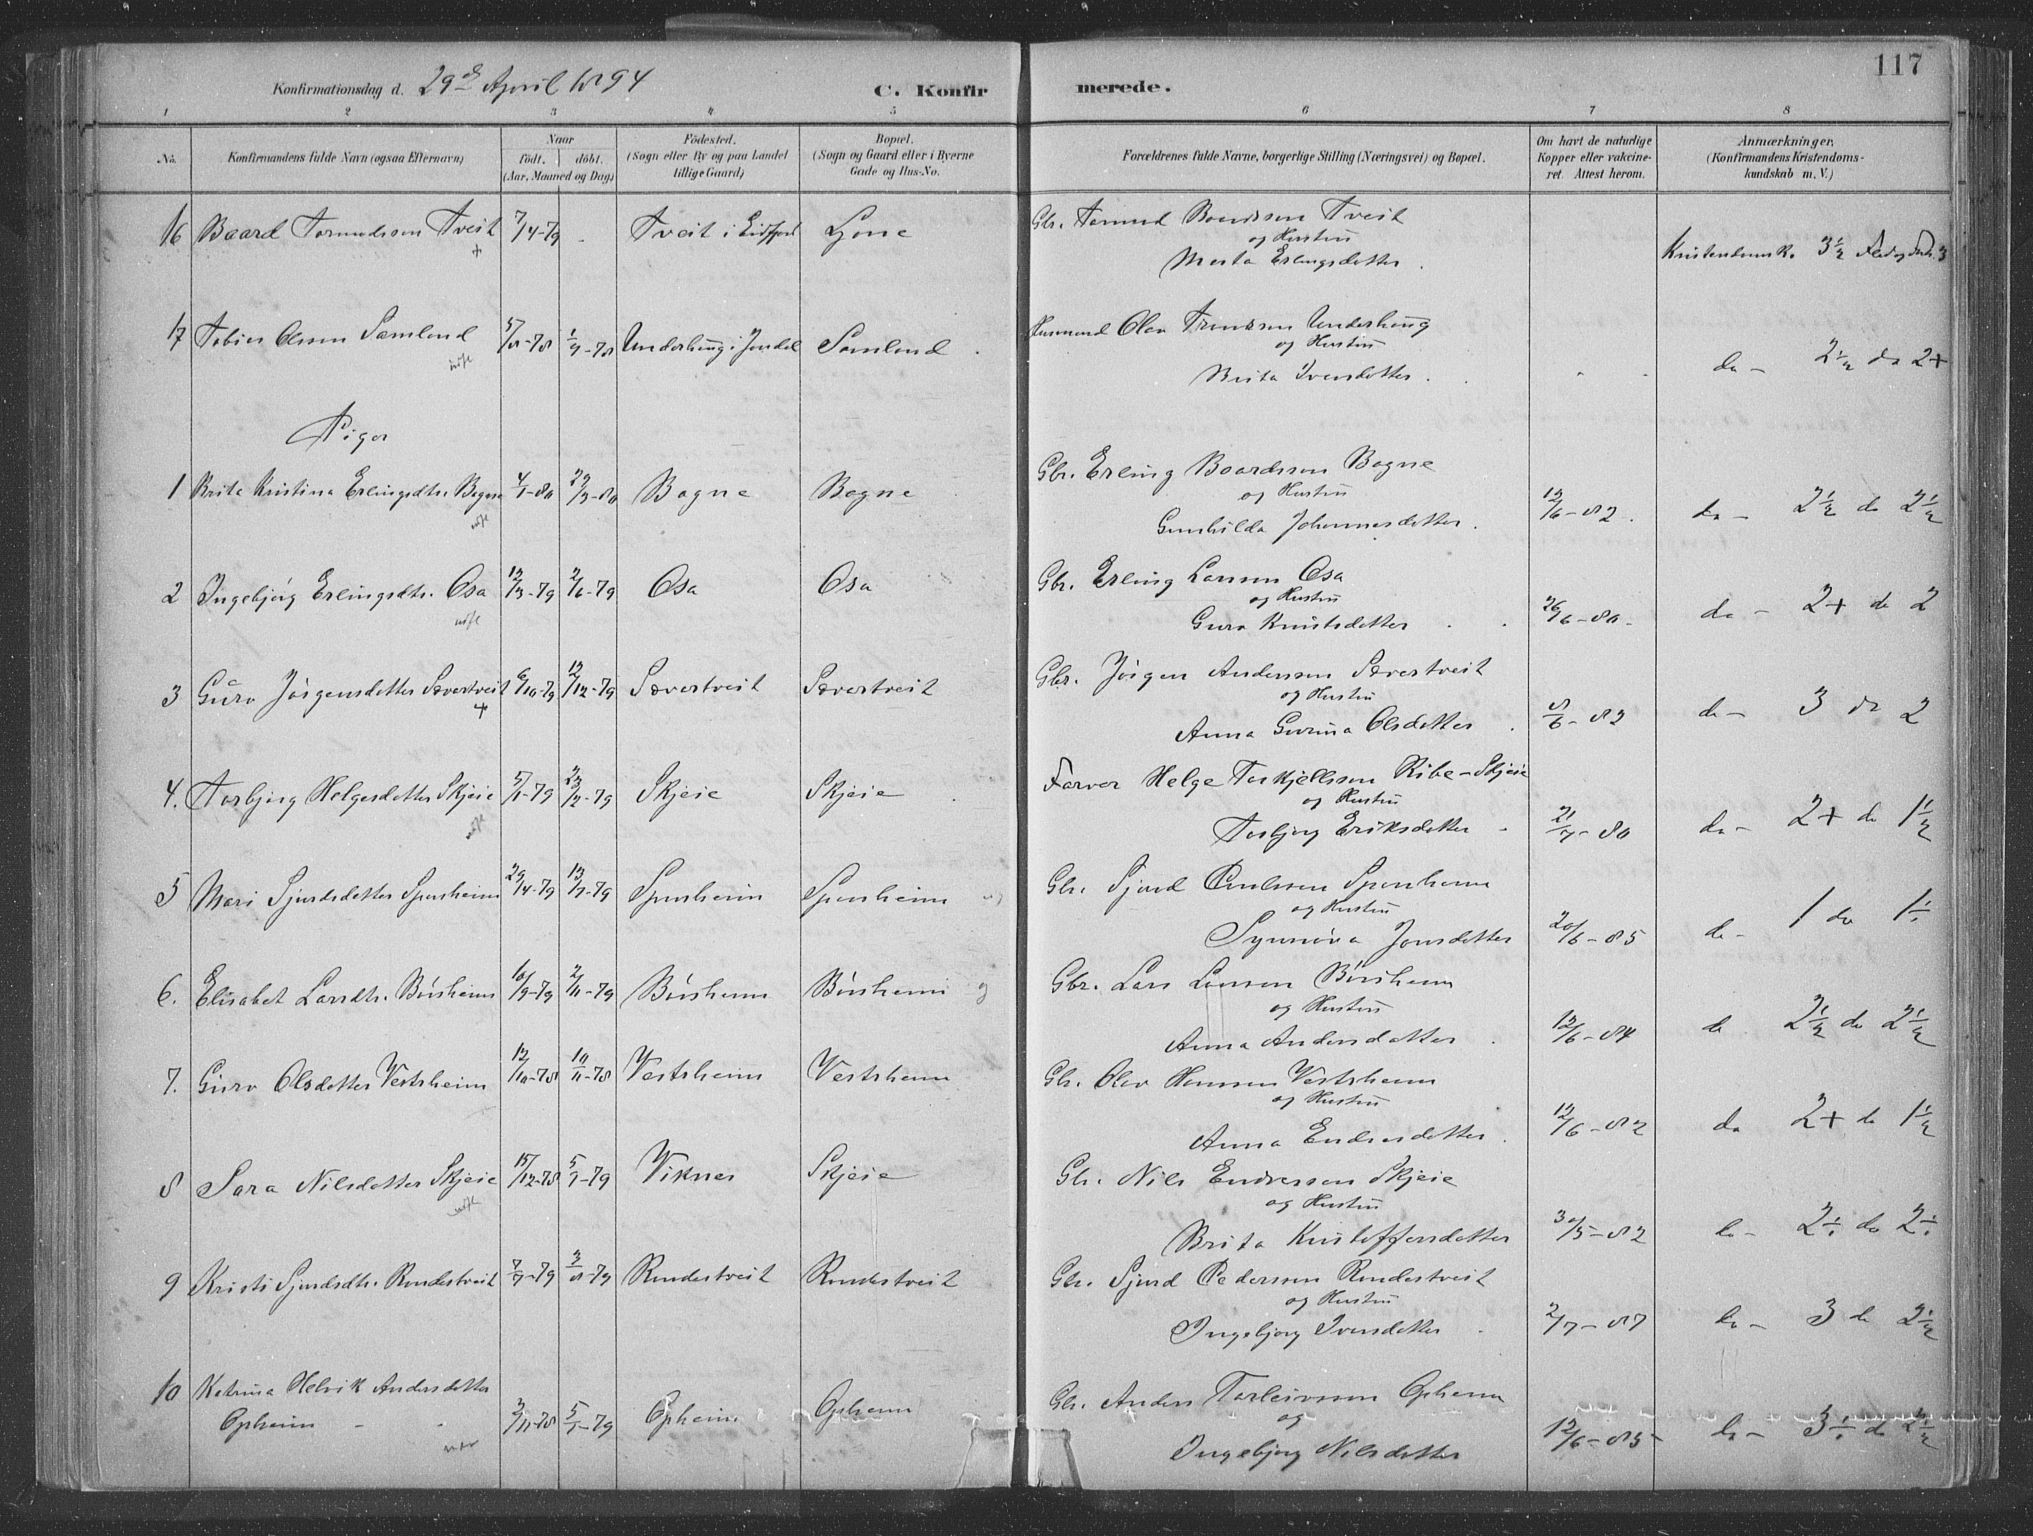 117
Konfirmationsdag d. 29de April 1894 C. Konfirmerede.
1 2 3 4 5 6 7 8
No. Konfirmandens fulde Navn (ogsaa Efternavn) Naar født. døbt. (Aar, Maaned og Dag) Fødested. (Sogn eller By og paa Landet tillige Gaard) Bopæl. (Sogn og Gaard eller i Byerne Gade og Hus-No.
Forældrenes fulde Navne, borgerlige Stilling (Næringsvei) og Bopæl. Om havt de naturlige Kopper eller vakcineret. Attest herom. Anmærkninger. (Konfirmandens Kristendomskundskab m. V.)
16 Baard Tormodsson Tveit 7/4-79 Tveit i Eidfjord Lione Gbr. Tormod Baardsson Tveit
og Hustru
Marta Erlingsdotter. Kristendomsk. 3½ 3
17 Tobias Olsson Samland 5/8-78 1/9-78 Underhaug i Jondal Samland Husmand Olav Underhaug
og Hustru
Brita Iversdotter. do - 2½ do 2+
Piger
1 Brita Kristina Erlingsdtr. Bagne 4/1-80 29/3-80 Bagne Bagne Gbr. Erling Baardsson Bagne
og Hustru
Gunhilda Johannesdotter. 12/6-82. do - 2½ do 2½
2 Ingebjørg Erlingsdtr. Osa 12/3-79 2/6-79 Osa Osa Gbr. Erling Larsson Osa
og Hustru
Guro Knutsdotter 26/6-80. do - 2+ do 2
3 Guro Jørgensdotter Sævertveit 6/10-79 12/12-79 Sævertveit Sævertveit Gbr. Jørgen Andersson Sævertveit
og Hustru
Anna Gurina Olsdotter. 8/6-83 do - 3 do 2
4. Torbjørg Helgesdotter Skjeie 5/1-79 23/2-79 Skjeie Skjeie Farver Helge Torkjellsson Ribe-Skjeie
og Hustru
Torbjørg Eriksdotter 21/7-80 do - 2+ do 1½
5 Mari Sjurdsdotter Sponheim 29/4-79 13/7-79 Sponheim Sponheim Gbr. Sjurd Paulsson Sponheim
og Hustru
Synnøva Jonsdotter 20/6-85 do - 1 do 1½
6. Elisabet Larsdtr. Børsheim 10/9-79 2/11-79 Børsheim Børsheim Gbr. Lars Larsson Børsheim
og Hustru
Anna Andersdotter. 12/6-84 do 2½ do 2½
7. Guro Olsdotter Vestrheim 12/10-78 10/11-78 Vestrheim Vestrheim Gbr. Olav Hansson Vestrheim
og Hustru
Anna Endresdotter. 12/6-82 do 2+ do 1½
8 Sara Nilsdotter Skjeie 15/12-78 5/7-79 Viknes Skjeie Gbr. Nils Endresson Skjeie
og Hustru
Brita Kristoffersdotter 30/5-82 do - 2½ do 2½
9 Kristi Sjurdsdtr. Rondestveit 7/7-79 3/8-79 Rondestveit Rondestveit Gbr. Sjurd Pedersson Rondestveit
og Hustru
Ingebjørg Iversdotter 2/7-87 do - 3 do 2½
10 Katrina Helvik Andersdotter
Opheim 3/11-78 5/1-79 Opheim Opheim Gbr. Anders Torleivsson Opheim
og
Ingebjørg Nilsdotter 12/6-85- do - 3½ do 2½